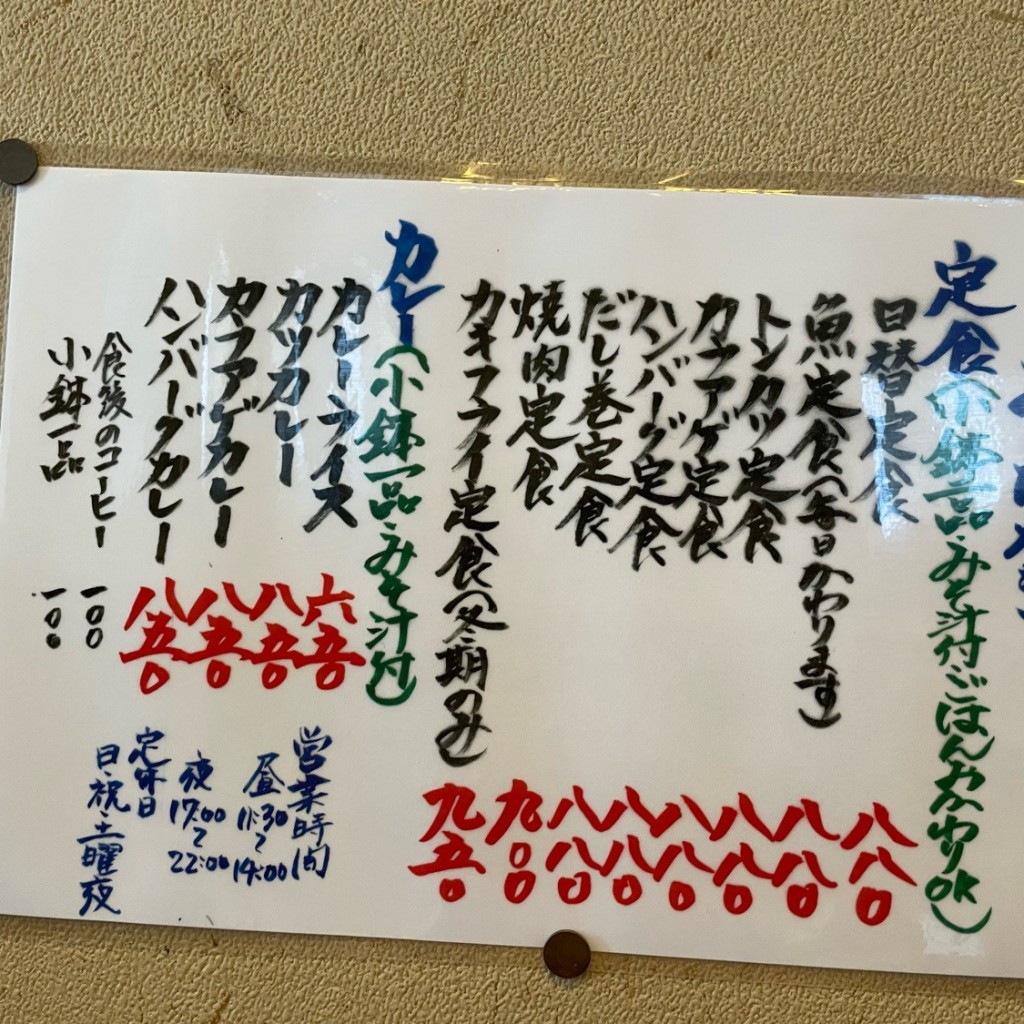 定食(小鉢一品・みそ汁付・ごはんおかわりOK)
日替定食 八八〇
魚定食(毎日かわります) 八八〇
トンカツ定食 八八〇
カラアゲ定食 八八〇
ハンバーグ定食 八八〇
だし巻定食 八八〇
焼肉定食 九〇〇
カキフライ定食(冬期のみ) 九五〇
カレー(小鉢一品・みそ汁付)
カレーライス 六五〇
カツカレー 八五〇
カラアゲカレー 八五〇
ハンバーグカレー 八五〇
食後のコーヒー 一〇〇
小鉢一品 一〇〇
営業時間
昼 11:30〜14:00
夜 17:00〜22:00
定休日
日・祝・土曜夜